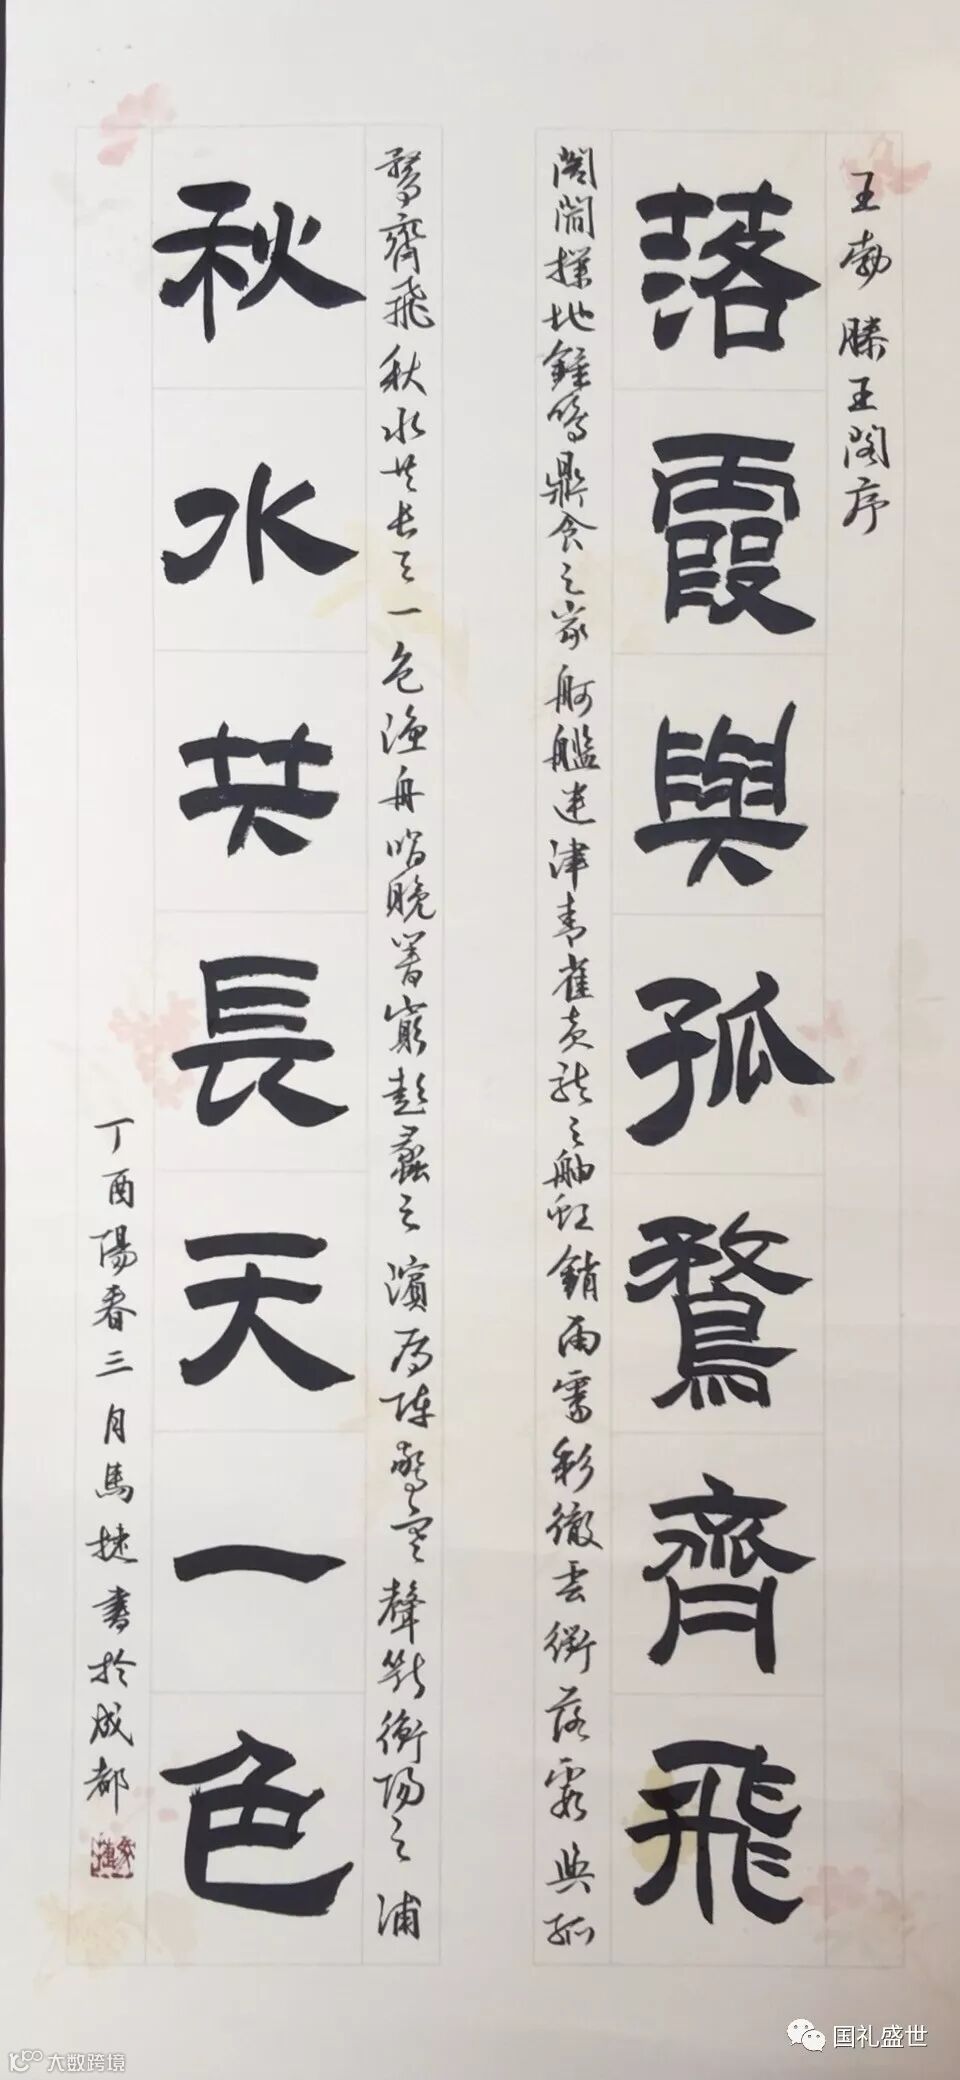 王勃滕王閣序
落霞與孤鶩齊飛
閭閻撲地鐘鳴鼎食之家舸艦迷津青雀黃龍之舳虹銷雨霽彩徹雲衢落霞與孤
鶩齊飛秋水共長天一色漁舟唱晚響窮彭蠡之濱雁陣驚寒聲斷衡陽之浦
秋水共長天一色
丁酉陽春三月馬捷書於成都
国礼盛世
大数跨境